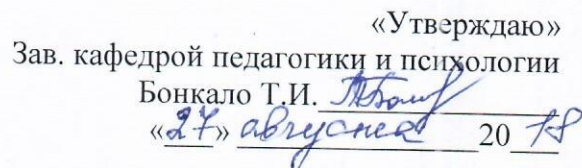 «Утверждаю»
Зав. кафедрой педагогики и психологии
Бонкало Т.И.
«27» августа 2018